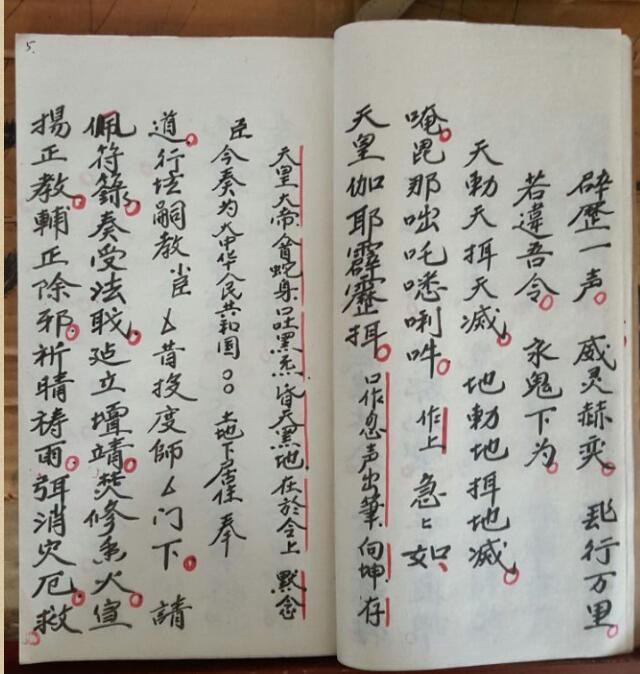 辟歷一声 威灵赫奕 飛行万里
若違吾令 永鬼下为
天勅天揖天滅 地勅地揖地滅
唵毘那咄吒㗭唎吽 作上 急〻如
天皇伽耶霹靂揖 口作忿声出筆 向坤 存
天皇大帝 人首蛇身 口吐黑炁 昏天黑地 在於令上 默念
臣 今奏为大中华人民共和国○○ 土地下居住 奉
道行坛嗣教小臣厶 昔投度師厶门下 請
佩符籙 奏受法职 迠立壇靖 焚修香火 宣
揚正教 輔正除邪 祈晴祷雨 弭消灾厄 救
5.